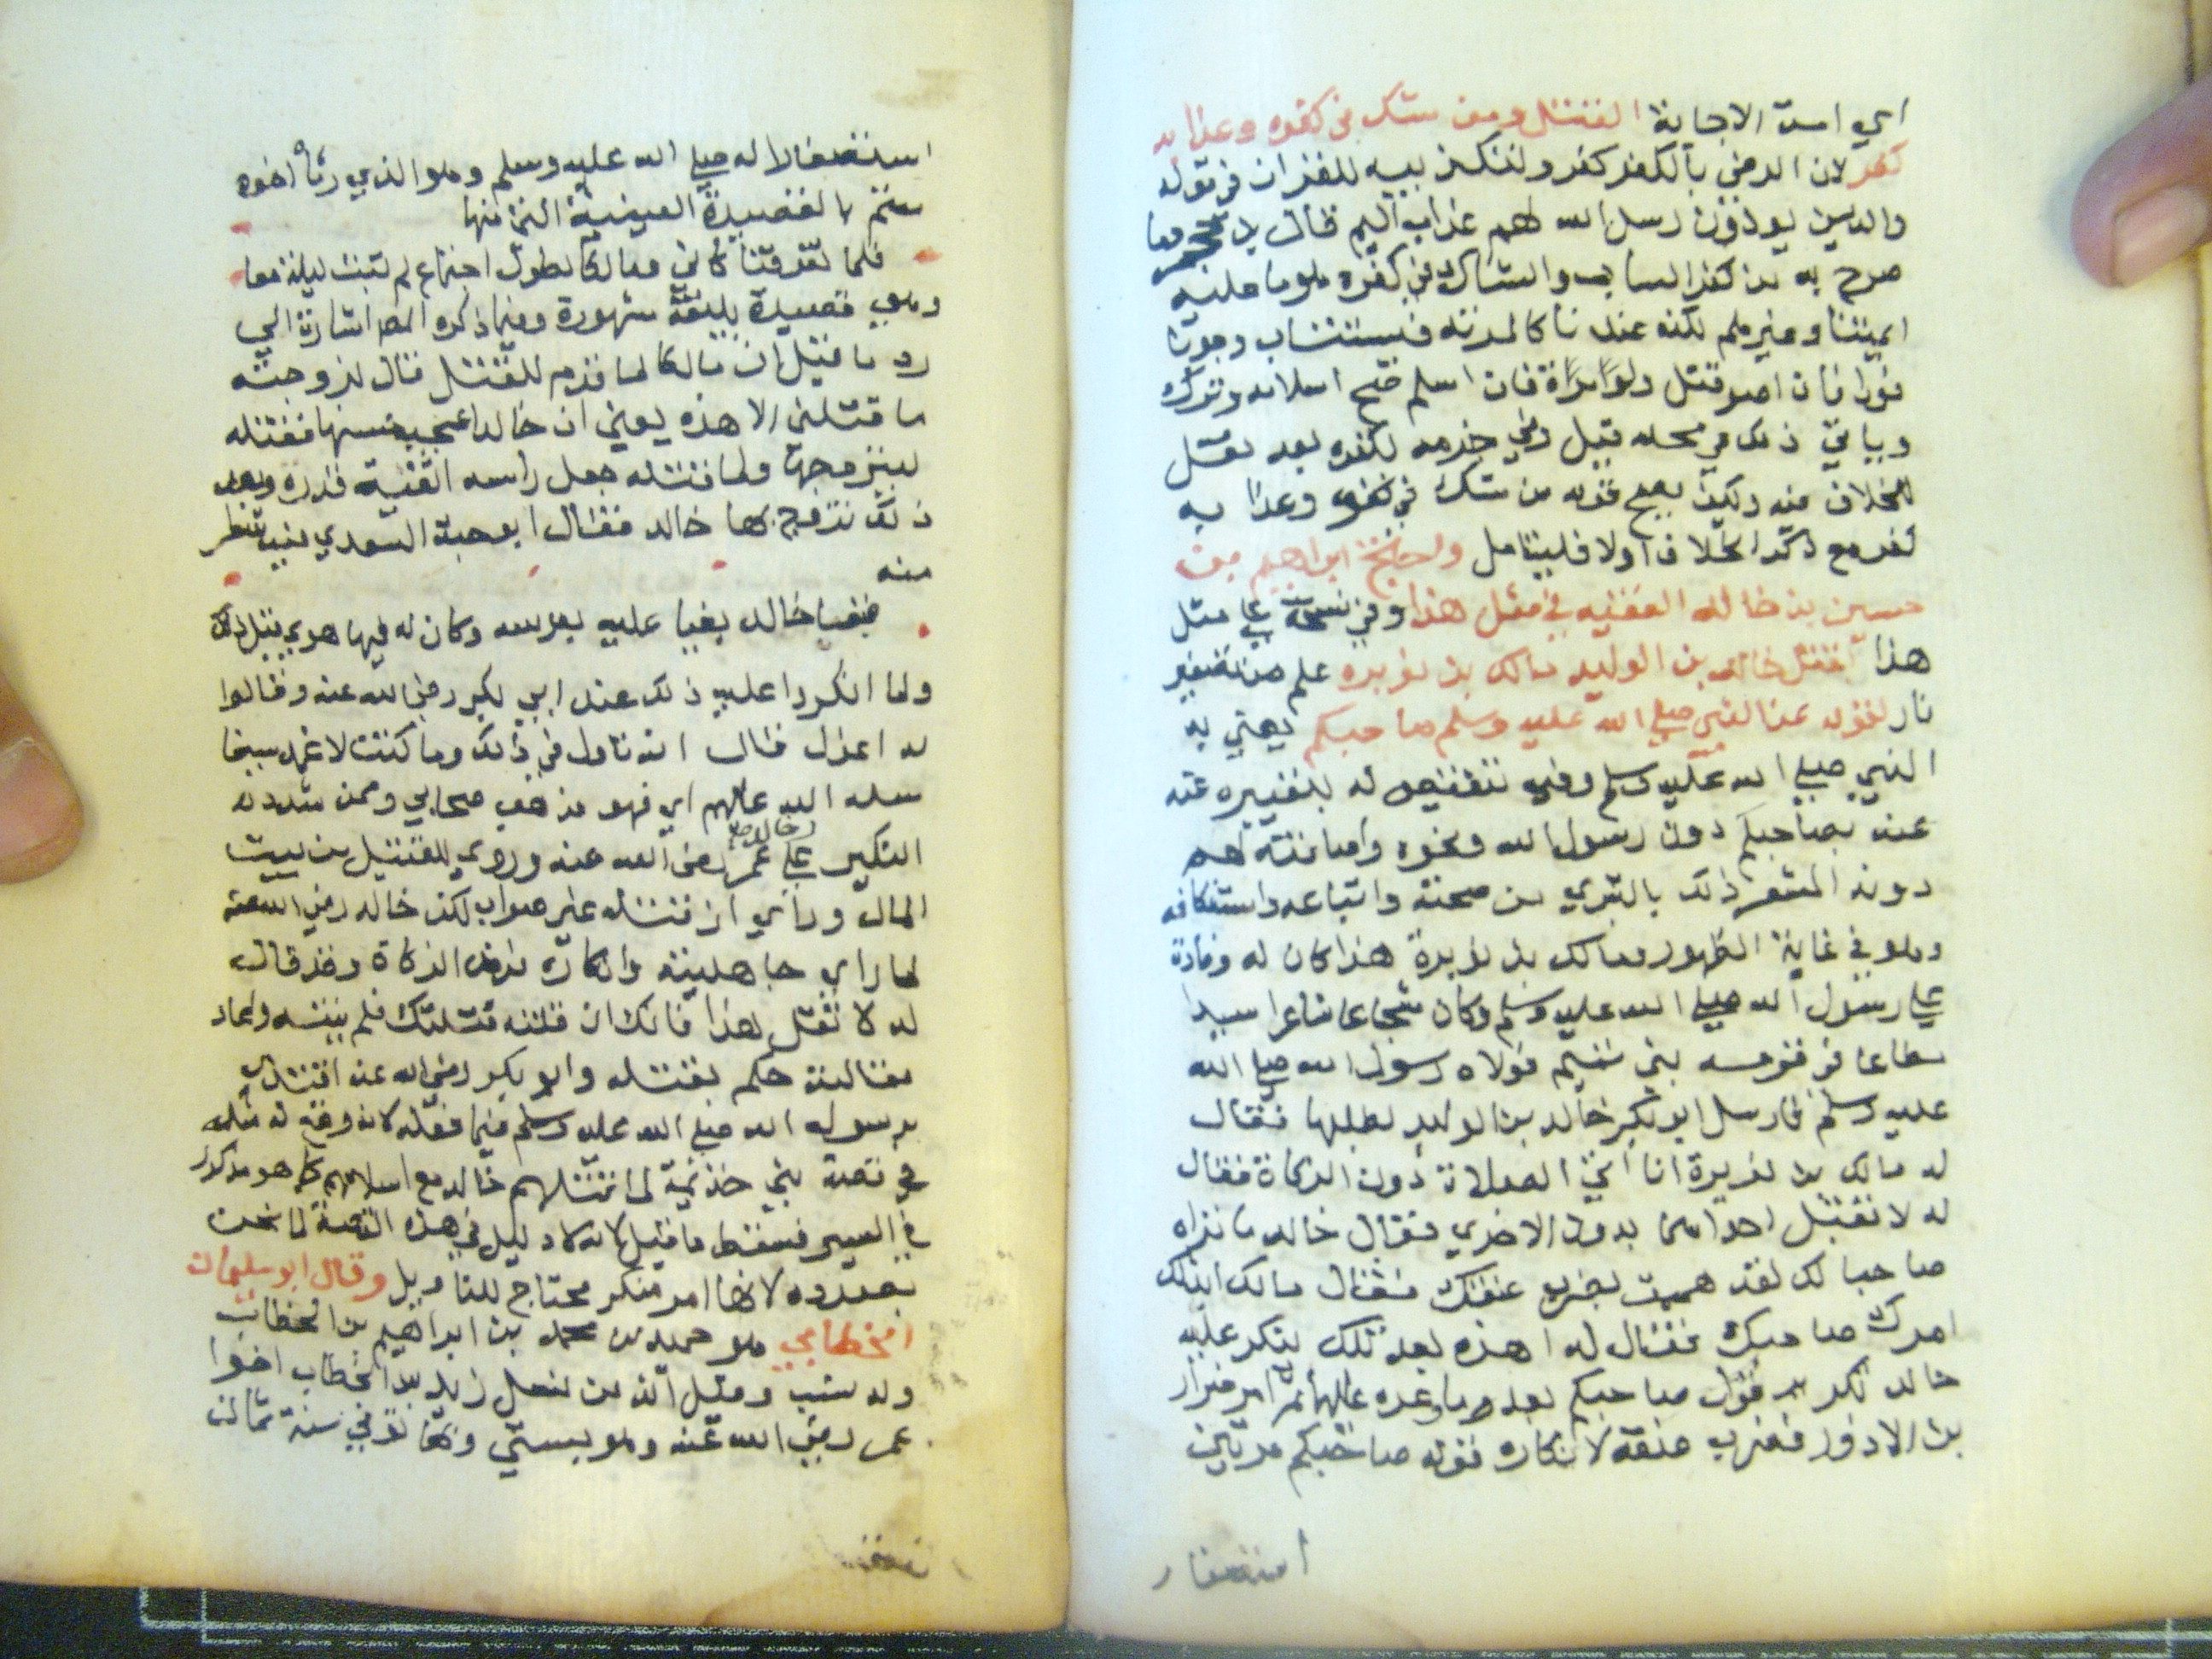 اي امة الاجابة القتل ومن شك في كفره وعذابه
كفر لان الرضى بالكفر كفر ولتكذيبه للقران في قوله
والذين يوذون رسول الله لهم عذاب اليم قال بن حجر وما
صرح به من كفر الساب والشاك في كفره هو ما عليه
ايمتنا وغيرهم لكنه عندنا كالمرتد فيستتاب وجوبا
فورا فان اصر قتل ولو امراة فان اسلم صح اسلامه وترك
وياتي ذلك في محله قيل وفي جزمه بكفره بعد نقل
الخلاف فيه وكيف يصح قوله من شك في كفره وعذابه
كفر مع ذكر الخلاف اولا فليتامل واحتج ابراهيم بن
حسين بن خالد الفقيه في مثل هذا وفي نسخة على مثل
هذا بقتل خالد بن الوليد مالك بن نويره علم من تصغير
نار لقوله عن النبي صلى الله عليه وسلم صاحبكم يعني به
النبي صلى الله عليه وسلم وفيه تنقيص له بتعبيره عنه
عنه بصاحبكم دون رسول الله ونحوه واضافته لهم
دونه المشعر ذلك بالتبري من صحبته واتباعه واستنكافه
وهو في غاية الظهور ومالك بن نويرة هذا كان له وفادة
على رسول الله صلى الله عليه وسلم وكان شجاعا شاعرا سيدا
مطاعا في قومه بني تميم فولاه رسول الله صلى الله
عليه وسلم فارسل ابو بكر خالد بن الوليد لطلبها فقال
له مالك بن نويرة انا اتي الصلاة دون الزكاة فقال
له لا تقبل احداهما بدون الاخرى فقال خالد ما نراه
صاحبا لك لقد هممت بضرب عنقك فقال مالك ابتلك
امرك صاحبك فقال له اهذه بعد تلك ينكر عليه
خالد تكرير قول صاحبكم بعد وغده عليها ثم امر ضرار
بن الازور فضرب عنقه لانكاره قوله صاحبكم مرتين
استنقصا
استنقصالا له صلى الله عليه وسلم وهو الذي رثاه اخوه
متمم بالقصيدة العينية التي منها
فلما تفرقنا كاني ومالكا لطول اجتماع لم نبت ليلة معا
وهي قصيدة بليغة مشهورة وفيما ذكره المص اشارة الى
رد ما قيل ان مالكا لما قدم للقتل قال لزوجته
ما قتلني الا هذه يعني ان خالدا اعجبه حسنها فقتله
ليتزوجها ولما قتله جعل راسه اثفية قدره وبعد
ذلك تزوج بها خالد فقال ابو حبة السعدي
منه
فقضى خالد بغيا عليه بعرسه وكان له فيها هوى قبل ذلك
ولما انكروا عليه ذلك عند ابي بكر رضي الله عنه وقالوا
له اعزله قال انه تاول في ذلك وما كنت لاغمد سيفا
سله الله عليهم اي فهو مذهب صحابي وممن شدد له
النكير على خالد عمر رضي الله عنه ورودي للقتيل من بيت
المال وراى ان قتله غير صواب لكن خالد رضي الله عنه
لما راى جاهليته وانكاره فرض الزكاة وقد قال
له لا تقل هذا فانك ان قلته قتلتك فلم ينته واعاد
مقالته حكم بقتله وابو بكر رضي الله عنه اقتدى
برسول الله صلى الله عليه وسلم فيما فعله لانه وقع له مثله
في قصة بني خذيمة لما قتلهم خالد مع اسلامهم كما هو مذكور
في السير فسقط ما قيل لانه لا دليل في هذه القصة لما نحن
بصدده لانها امر منكر محتاج للتاويل وقال ابو سليمان
الخطابي هو حمد بن محمد بن ابراهيم بن الخطاب
وله نسب وقيل انه من نسل زيد بن الخطاب اخوا
عمر رضي الله عنه وهو بستي وبها توفي سنة ثمان